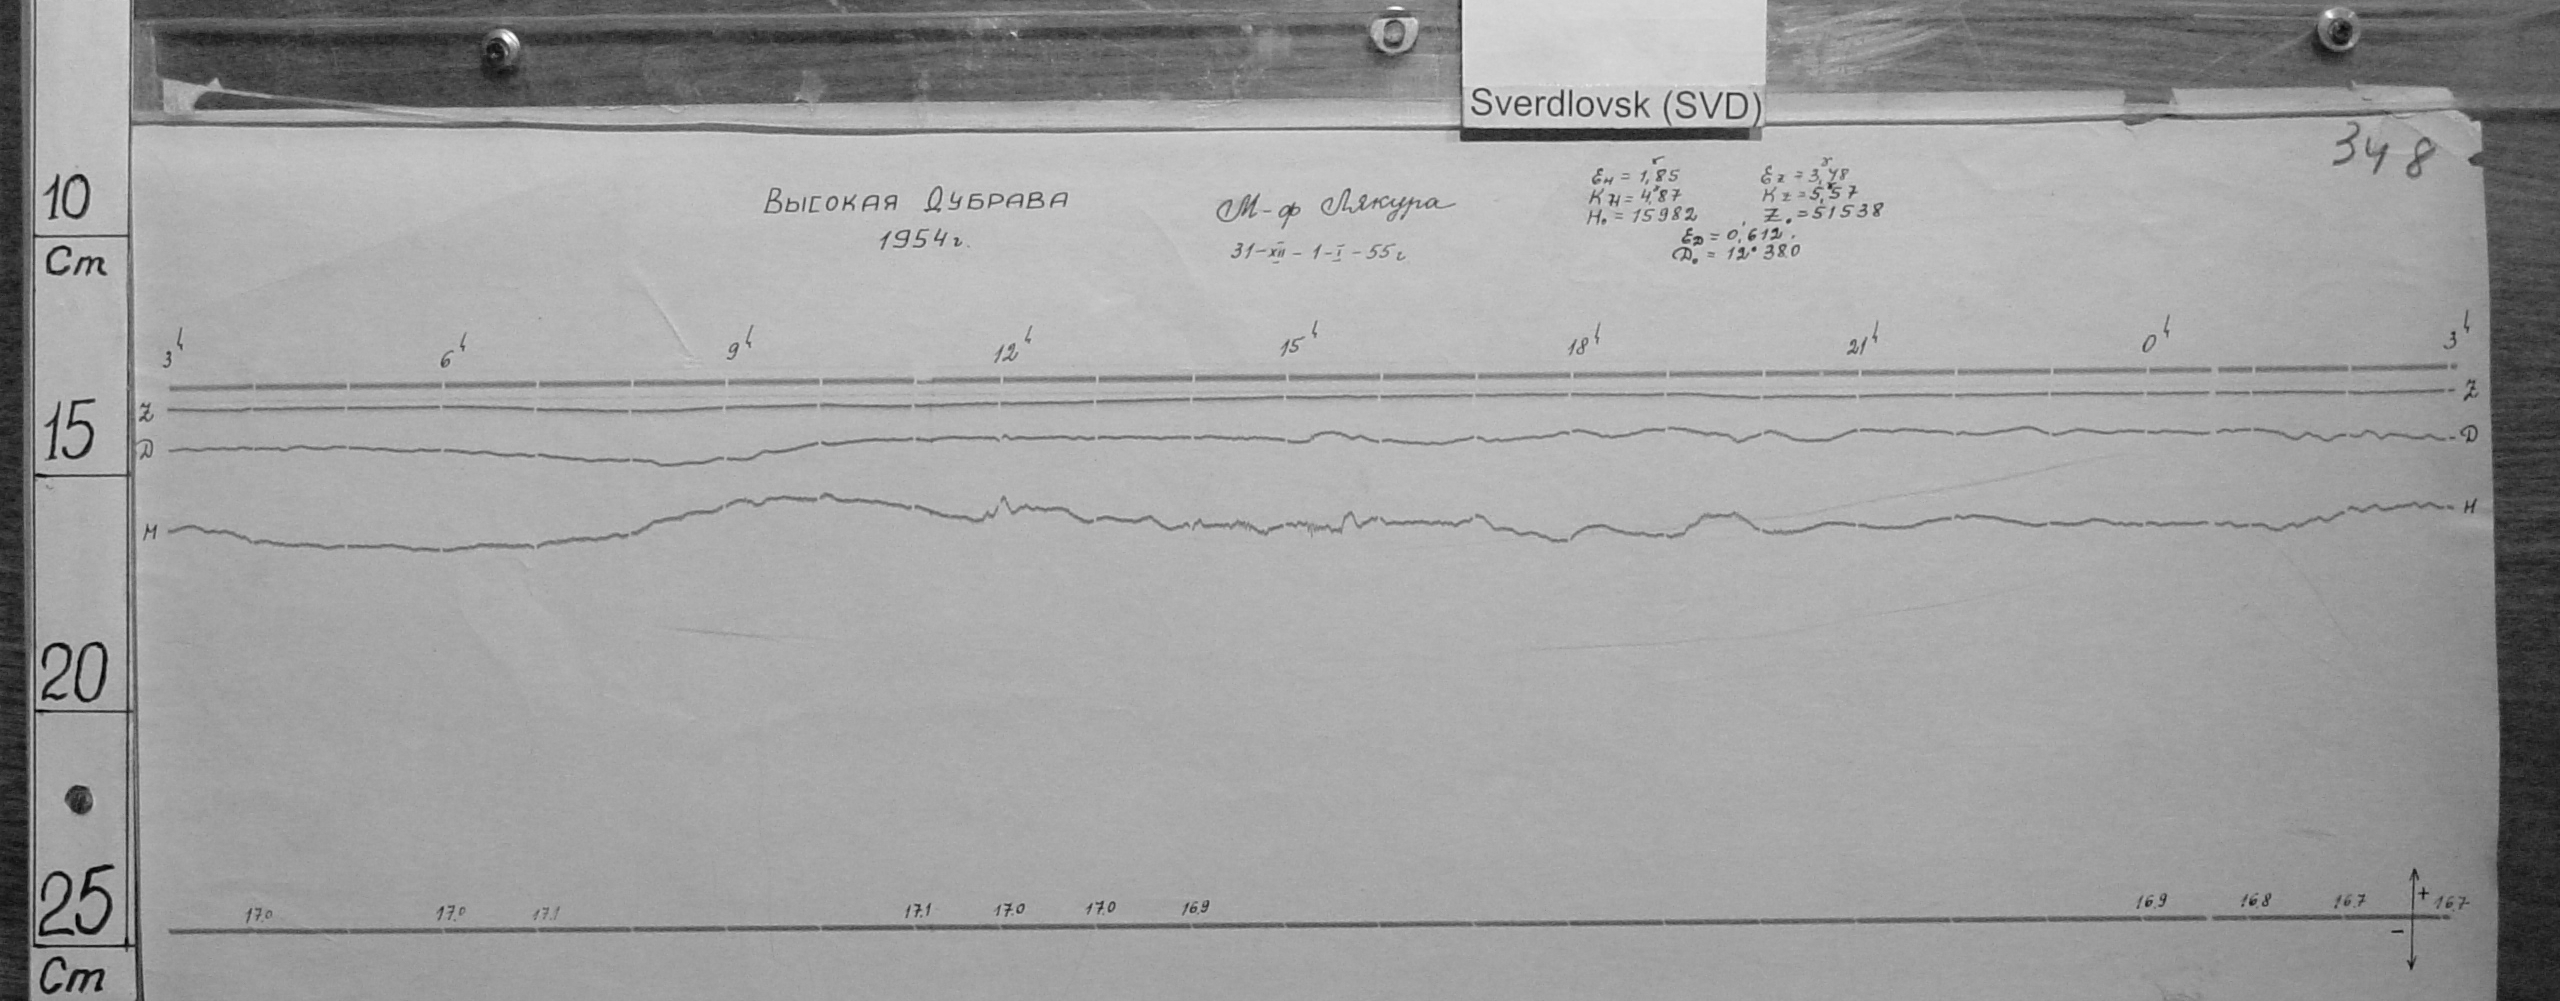 Sverdlovsk (SVD)
348
10
Cm
15
20
25
Cm
Высокая Дубрава
1954 г.
М-ф Лякура
31-XII - 1-I - 55 г
Ɛн = 1,85 Ɛz = 3,48
Кн = 4,87 Кz = 5,57
Н₀ = 15982 Z₀ = 51538
ƐD = 0,612
D₀ = 12° 38,0
3ʰ 6ʰ 9ʰ 12ʰ 15ʰ 18ʰ 21ʰ 0ʰ 3ʰ
Z Z
D D
H H
17.0 17.0 17.1 17.1 17.0 17.0 16.9 16.9 16.8 16.7 + 16.7
−